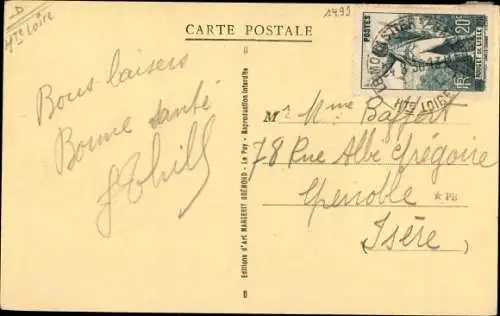 D
Hte Loire
1499
CARTE POSTALE
POSTES
20c
ROUGET DE LISLE
RF
LE MONASTIER
Hte LOIRE
Bons baisers
Bonne santé
Mr Mme
78 Rue Abbé Grégoire
Grenoble
* PB
Isère
Editions d'Art MARGERIT BRÉMOND - Le Puy - Reproduction interdite